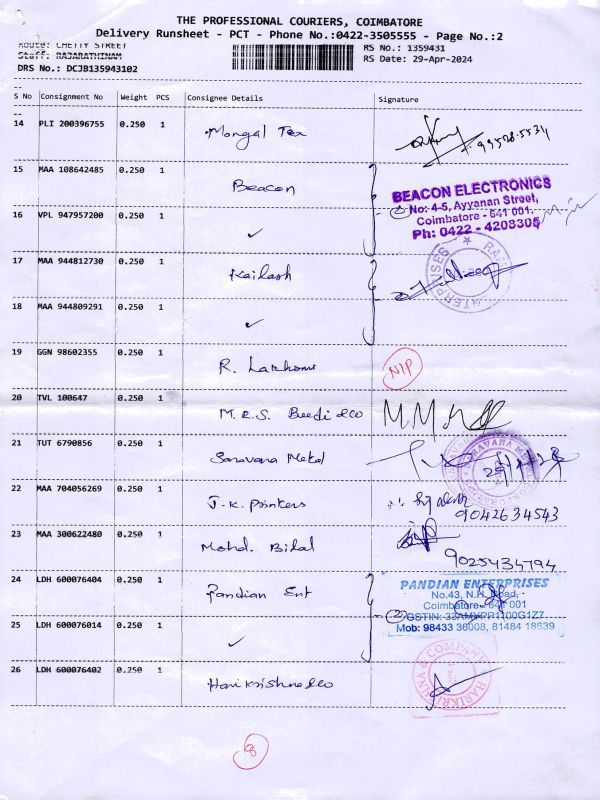 THE PROFESSIONAL COURIERS, COIMBATORE
Delivery Runsheet - PCT - Phone No.:0422-3505555 - Page No.:2
Route: CHETTY STREET
Staff: RAJARATHINAM
DRS No.: DCJB135943102
RS No.: 1359431
RS Date: 29-Apr-2024
S No Consignment No Weight PCS Consignee Details Signature
14 PLI 200396755 0.250 1 Mangal Tex 99528.5534
15 MAA 108642485 0.250 1 Beacon
BEACON ELECTRONICS
No: 4-5, Ayyanan Street,
Coimbatore - 641 001.
Ph: 0422 - 4208305
16 VPL 947957200 0.250 1 ✓
17 MAA 944812730 0.250 1 Kailash
18 MAA 944809291 0.250 1 ✓
19 GGN 98602355 0.250 1 R. Lakhami N/P
20 TVL 100647 0.250 1 M.R.S. Beedi &co
21 TUT 6790856 0.250 1 Saravana Metal
22 MAA 704056269 0.250 1 J.K. printers
9042634543
23 MAA 300622480 0.250 1 Mohd. Bilal
9025434794
24 LDH 600076404 0.250 1 Pandian Ent
PANDIAN ENTERPRISES
No.43, N.H. Road,
Coimbatore - 641 001
GSTIN: 33AMYPR1100G1Z7
Mob: 98433 36008, 81484 18639
25 LDH 600076014 0.250 1 ✓
26 LDH 600076402 0.250 1 Harikrishna &co
HARIKRISHNA & COMPANY
8